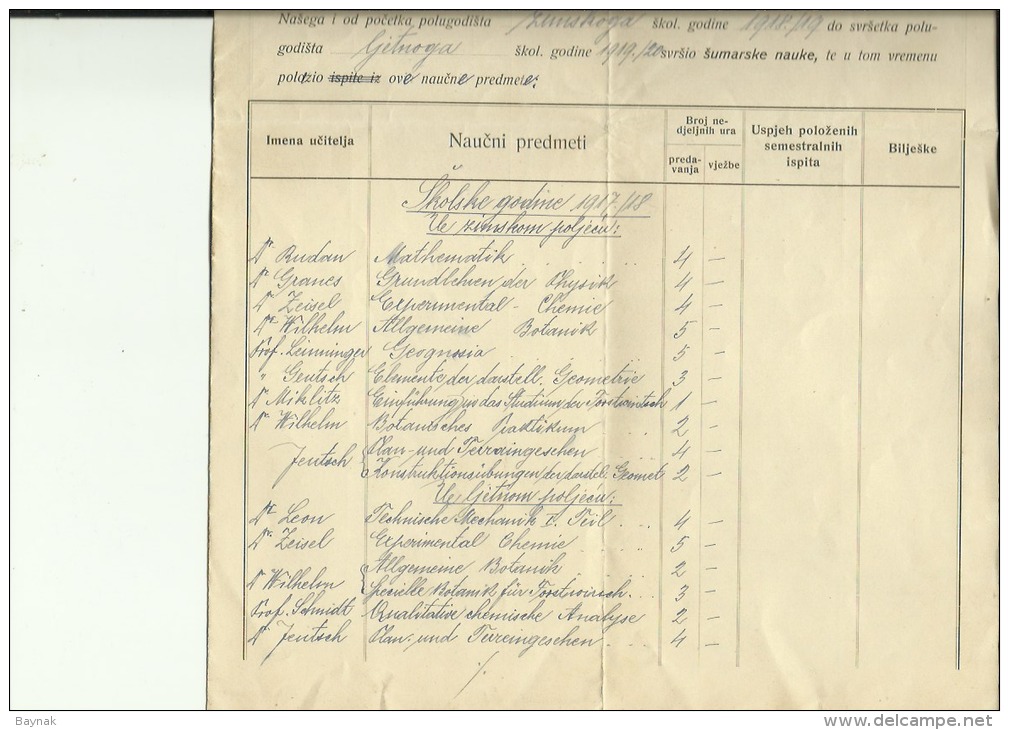 Našega i od početka polugodišta zimskoga škol. godine 1918./19 do svršetka polu-
godišta ljetnoga škol. godine 1919./20 svršio šumarske nauke, te u tom vremenu
položio ispite iz ove naučne predmete:
Imena učitelja Naučni predmeti Broj ne-djeljnih ura Uspjeh položenih semestralnih ispita Bilješke
preda-vanja vježbe
Školske godine 1917/18
U zimskom poljeću:
Dr Rudan Mathematik 4 —
Dr Granes Grundlehren der Physik 4 —
Dr Zeisel Experimental - Chemie 4 —
Dr Wilhelm Allgemeine Botanik 5 —
Prof. Leininger Geognosia 5 —
" Gentsch Elemente der darstell. Geometrie 3 —
Dr Miklitz Einführung in das Studium der Forstwirtsch 1 —
Dr Wilhelm Botanisches Praktikum 2 —
Jentsch Plan- und Terraingeschen 4 —
Konstruktionsübungen der darstel. Geomet 2 —
U ljetnom poljeću:
Dr Leon Technische Mechanik I. Teil 4 —
Dr Zeisel Experimental Chemie 5 —
Allgemeine Botanik 2 —
Dr Wilhelm Spezielle Botanik für Forstwirsch. 3 —
Prof. Schmidt Qualitative chemische Analyse 2 —
Dr Jentsch Plan- und Tereingeschen 4 —
./.
Baynak
www.delcampe.net